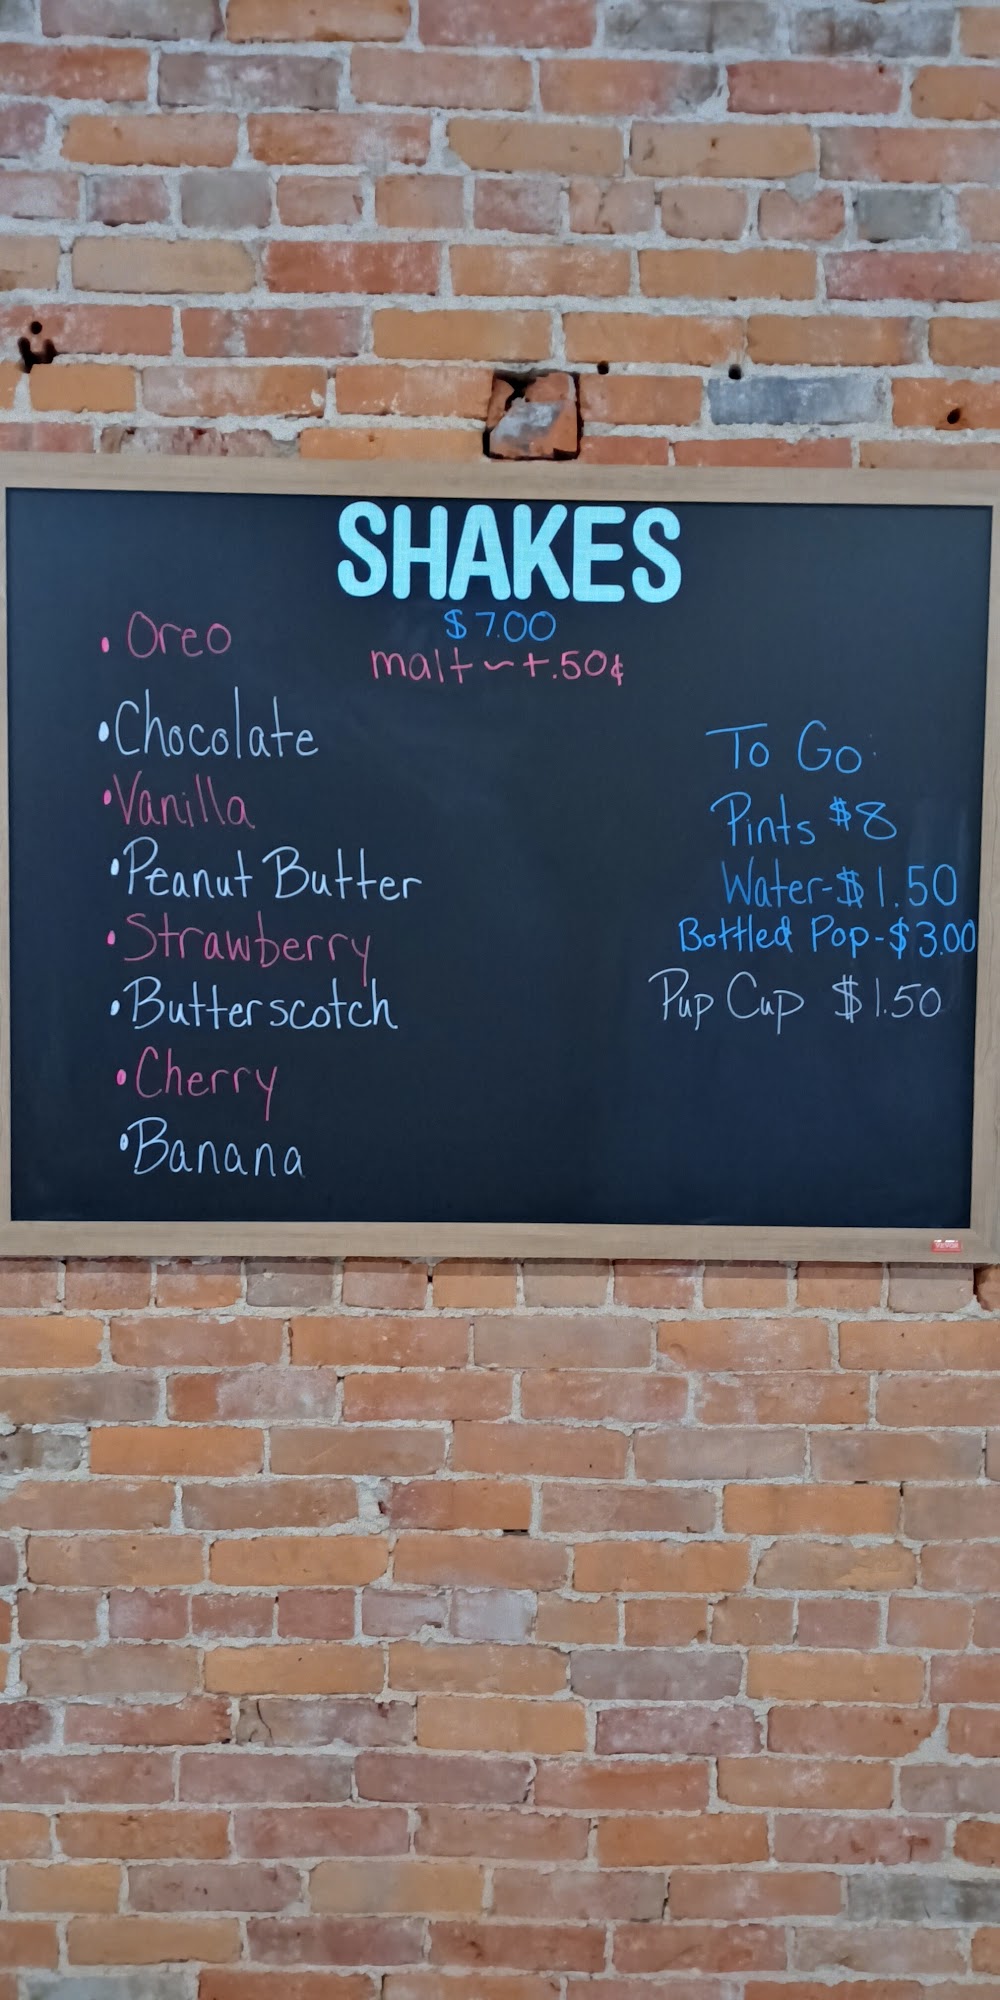 SHAKES
$7.00
malt ~ +.50¢
• Oreo
• Chocolate
• Vanilla
• Peanut Butter
• Strawberry
• Butterscotch
• Cherry
• Banana
To Go:
Pints $8
Water-$1.50
Bottled Pop-$3.00
Pup Cup $1.50